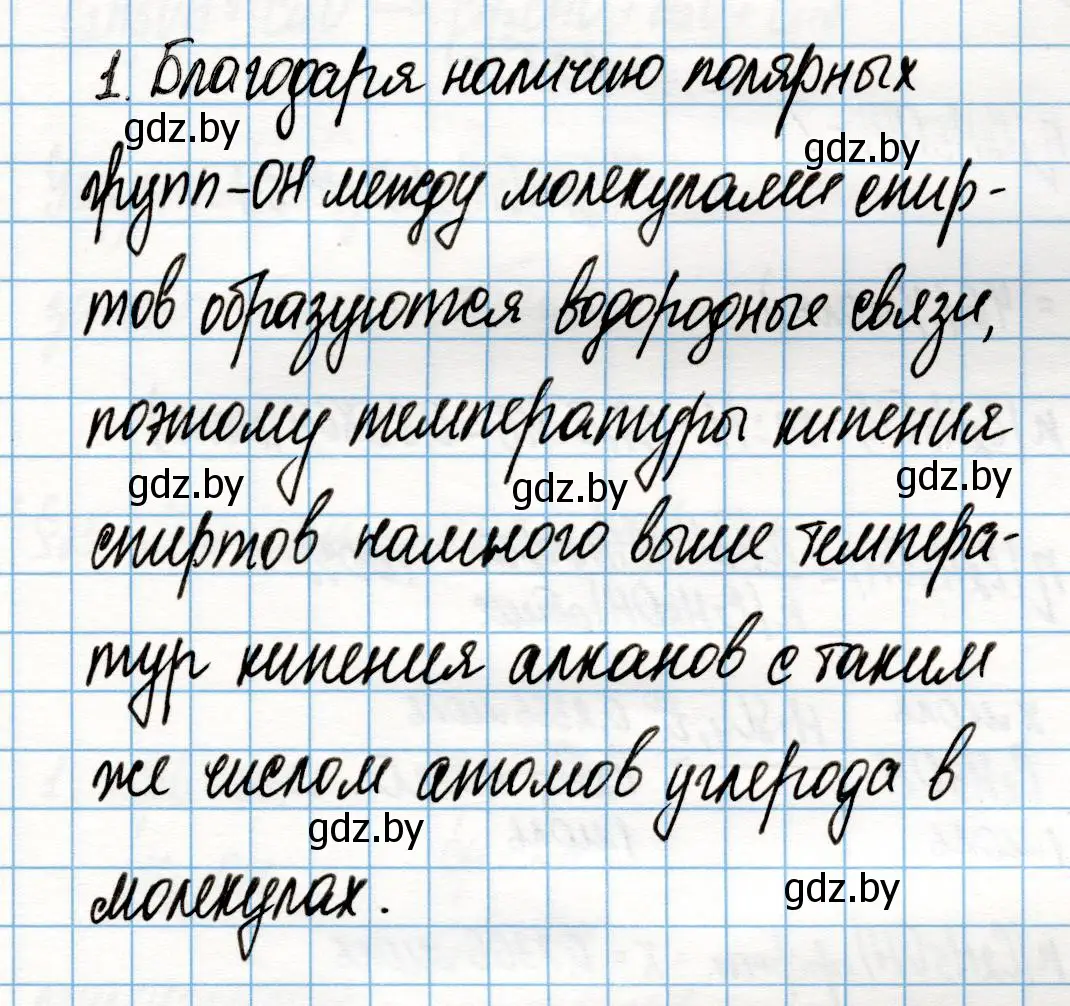 1. Благодаря наличию полярных
gdz.by
gdz.by
групп -ОН между молекулами спир-
тов образуются водородные связи,
поэтому температуры кипения
gdz.by
gdz.by
gdz.by
спиртов намного выше темпера-
тур кипения алканов с таким
же числом атомов углерода в
gdz.by
gdz.by
молекулах.